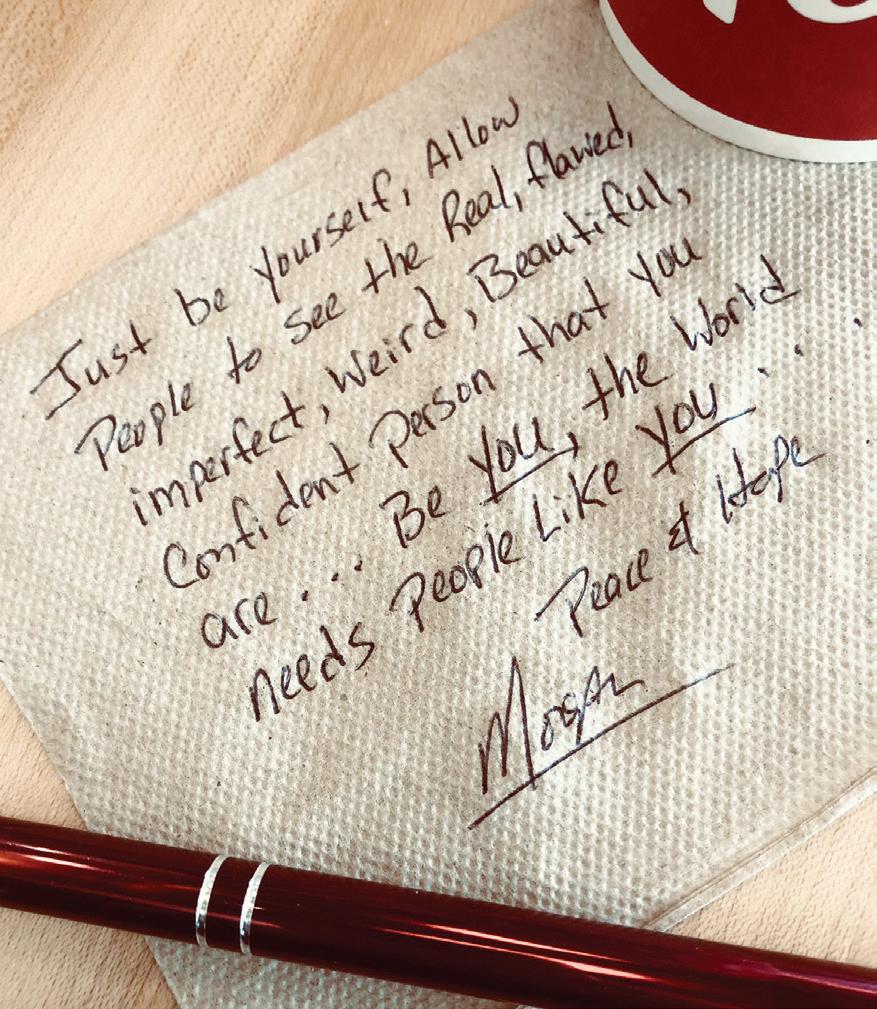 Just be yourself, Allow
People to see the Real, flawed,
imperfect, Weird, Beautiful,
Confident Person that you
are... Be you, the World
needs People Like you....
Peace & Hope
Morgan